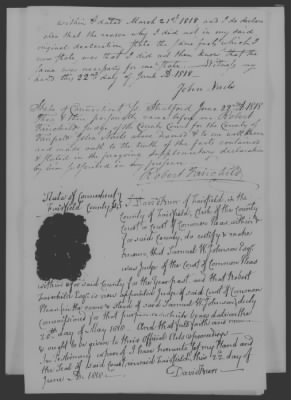 within & dated March 21st 1818 and I do declare
also that the reason why I did not in my said
original declaration state the same facts which I
now state was that I did not then know that the
same was necessary for me to state. Witness my
hand this 22nd day of June AD 1818.
John
State of Connecticut ss Stratford June 22nd AD 1818
then & there personally came before me Robert
Fairchild judge of the County Court for the County of
Fairfield John above named to me well known
and made oath to the truth of the facts contained
& stated in the foregoing supplementary declaration
by him subscribed in my presence
Robert Fairchild
State of Connecticut
Fairfield County ss I David Burr of Fairfield, in the
County of Fairfield, Clerk of the County
Court or Court of Common Pleas within &
for said County, do certify & make
known, that Samuel W. Johnson Esqr.
was judge of the Court of Common Pleas
within & for said County for the year past, and that Robert
Fairchild Esqr. is now appointed judge of said Court of Common
Pleas in the room & stead of said Samuel W. Johnson, duly
Commissioned for that purpose
day of May 1818. And that full faith and
ought to be given to their official acts
In testimony whereof I have hereunto set my Hand and
the Seal of said Court, in said Fairfield, this 22d day of
June AD. 1818.
David Burr